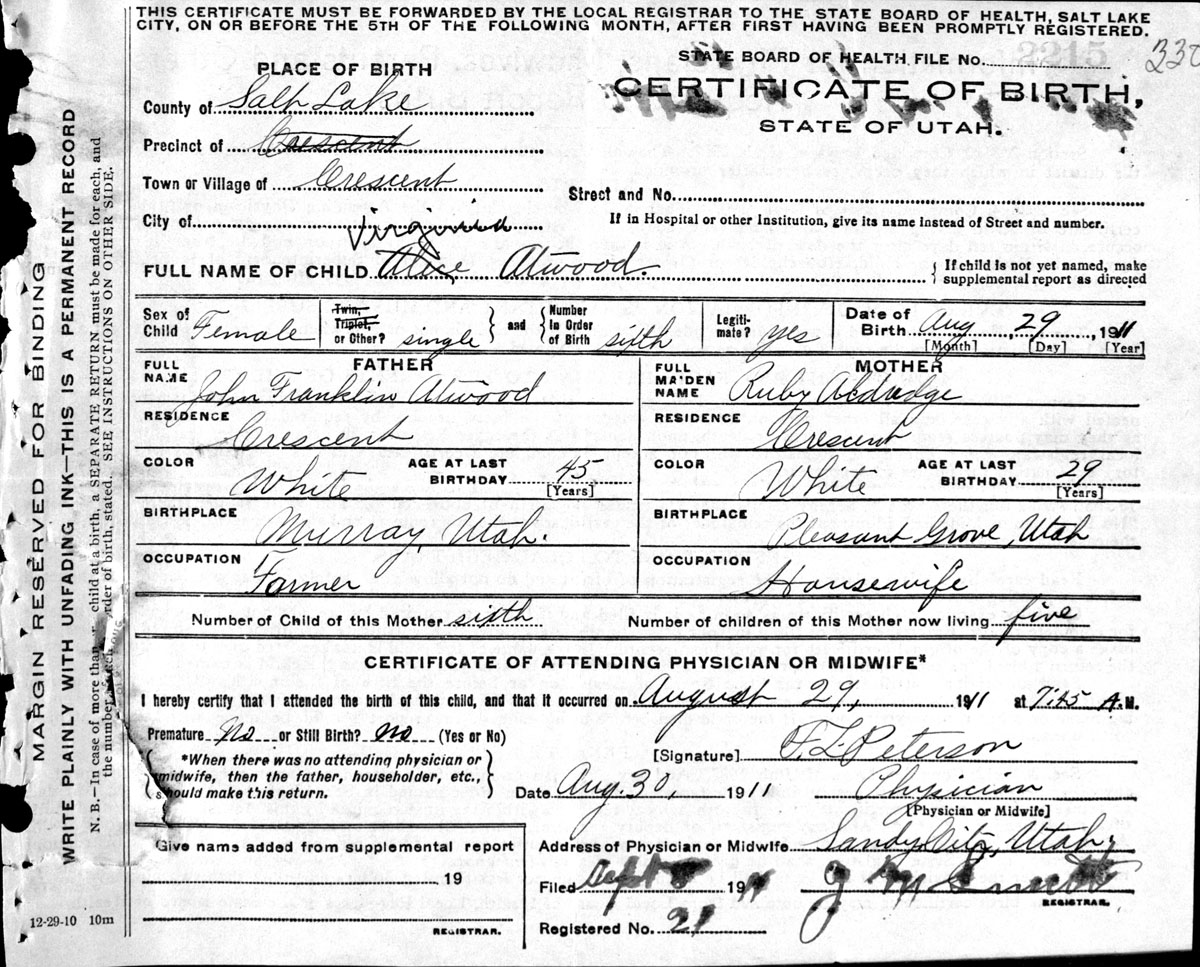 THIS CERTIFICATE MUST BE FORWARDED BY THE LOCAL REGISTRAR TO THE STATE BOARD OF HEALTH, SALT LAKE
CITY, ON OR BEFORE THE 5TH OF THE FOLLOWING MONTH, AFTER FIRST HAVING BEEN PROMPTLY REGISTERED.
STATE BOARD OF HEALTH FILE No.
CERTIFICATE OF BIRTH,
STATE OF UTAH.
PLACE OF BIRTH
County of Salt Lake
Precinct of Crescent
Town or Village of Crescent
City of
Street and No.
If in Hospital or other Institution, give its name instead of Street and number.
Virginia
FULL NAME OF CHILD Alice Atwood.
{ If child is not yet named, make
supplemental report as directed
Sex of Child Female
Twin, Triplet, or Other? single } and { Number in Order of Birth sixth
Legiti-mate? yes
Date of Birth Aug 29 1911
[Month] [Day] [Year]
FATHER
FULL NAME John Franklin Atwood
RESIDENCE Crescent
COLOR White AGE AT LAST BIRTHDAY 45 [Years]
BIRTHPLACE Murray, Utah.
OCCUPATION Farmer
MOTHER
FULL MAIDEN NAME Ruby Aldredge
RESIDENCE Crescent
COLOR White AGE AT LAST BIRTHDAY 29 [Years]
BIRTHPLACE Pleasant Grove, Utah
OCCUPATION Housewife
Number of Child of this Mother sixth Number of children of this Mother now living five
CERTIFICATE OF ATTENDING PHYSICIAN OR MIDWIFE*
I hereby certify that I attended the birth of this child, and that it occurred on August 29, 1911 at 7:45 A.M.
Premature No or Still Birth? No (Yes or No)
*When there was no attending physician or
midwife, then the father, householder, etc.,
should make this return.
[Signature] F. L. Peterson
Date Aug. 30, 1911 Physician
[Physician or Midwife]
Give name added from supplemental report
19
REGISTRAR.
Address of Physician or Midwife Sandy City, Utah.
Filed 19
REGISTRAR.
Registered No. 21
12-29-10 10m
MARGIN RESERVED FOR BINDING
WRITE PLAINLY WITH UNFADING INK—THIS IS A PERMANENT RECORD
N. B.—In case of more than child at a birth, a SEPARATE RETURN must be made for each, and
the number order of birth, stated. SEE INSTRUCTIONS ON OTHER SIDE.